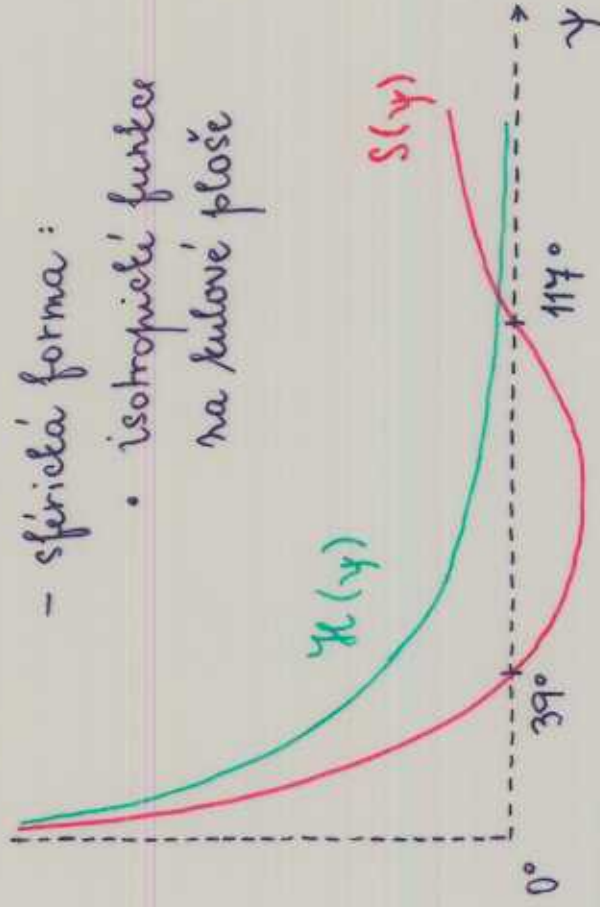 – sférická forma :
• isotropické funkce
na kulové ploše
H(ψ)
S(ψ)
0°
39°
117°
ψ